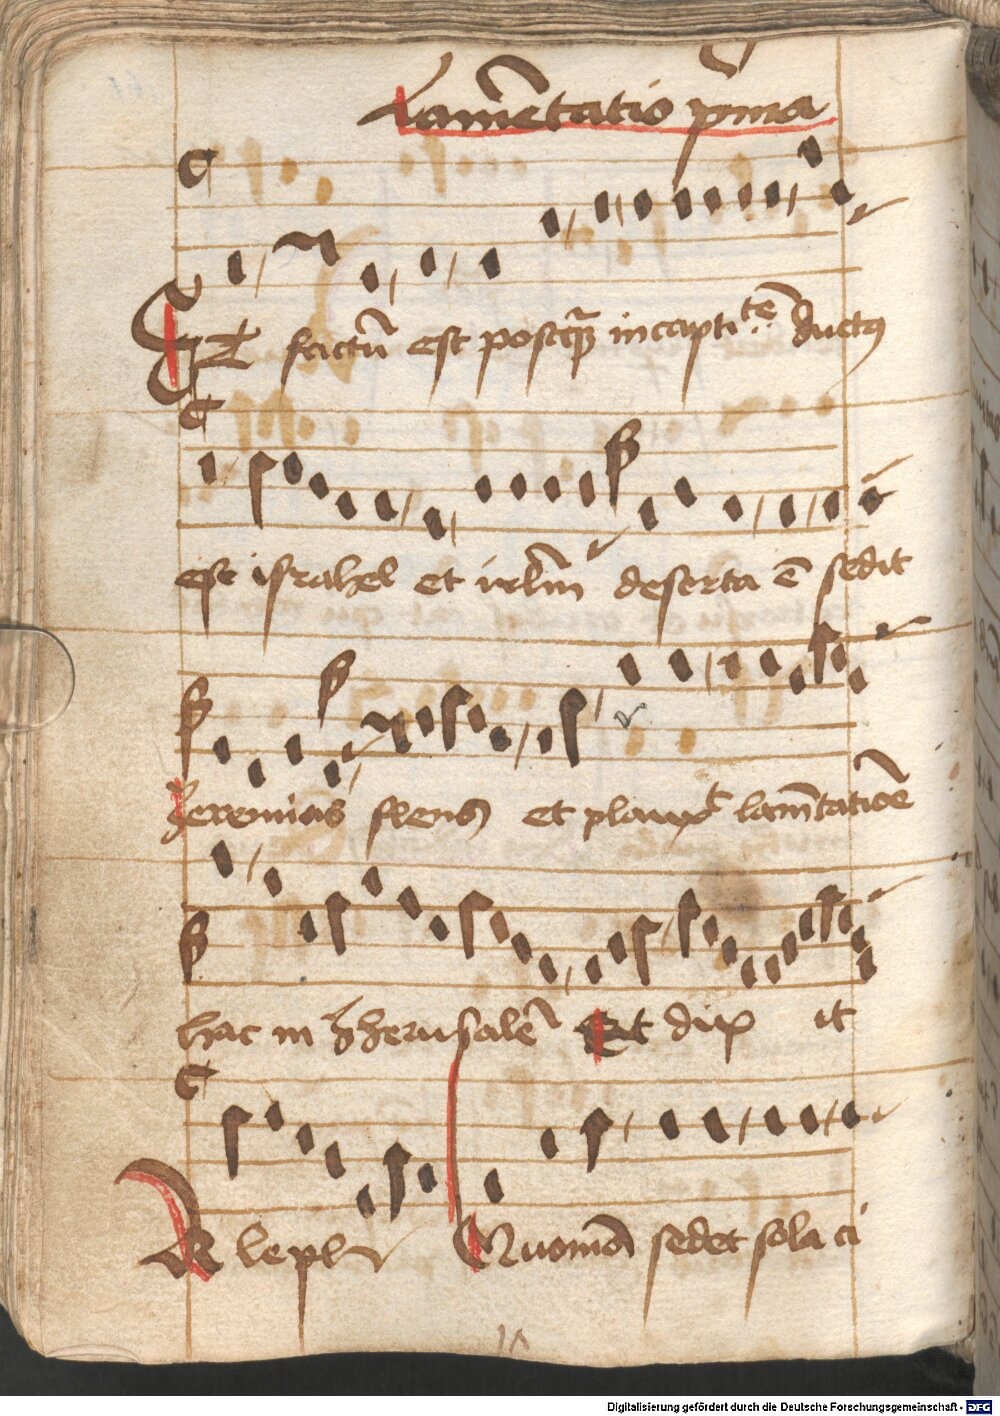 Lamētatio pͥma
Et factū est postqͣꝫ in captiᵗē ductꝰ
est israhel et irlm̄ deserta ē sedit
Jeremias flens et planxᵗ lam̄tatioē
hac in Jherusalē Et dix it
Aleph Quomō sedet sola ci
Digitalisierung gefördert durch die Deutsche Forschungsgemeinschaft - DFG